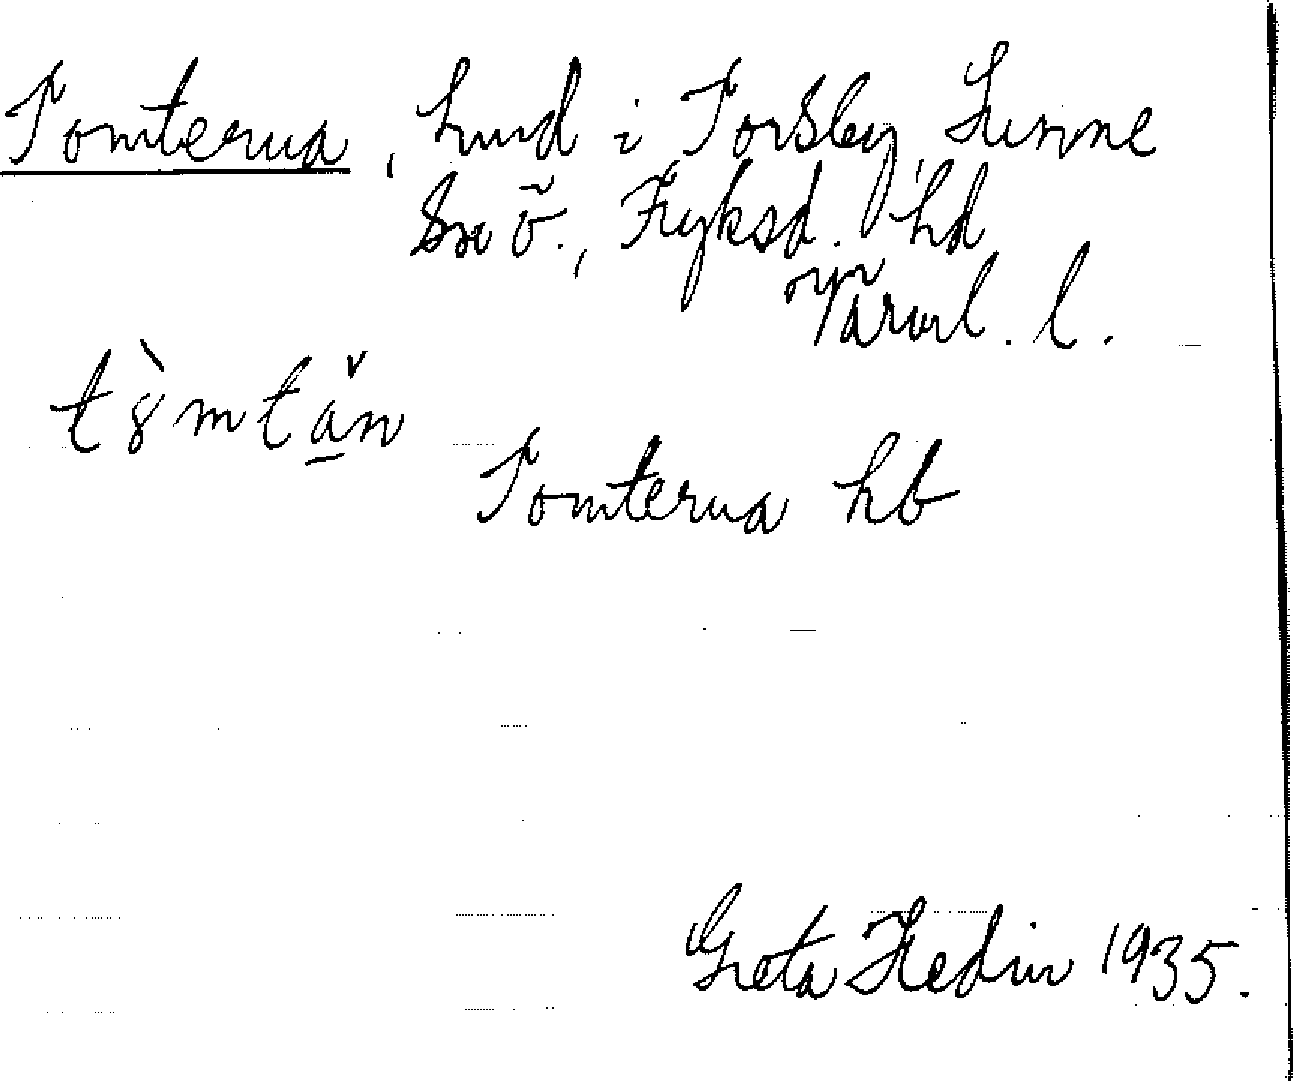 Tomterna, lund i Torsby, Sunne
sn ö., Fryksd. hd
Värml. l.
t8̀mtǎ̠n
Tomterna hb
Greta Hedin 1935.